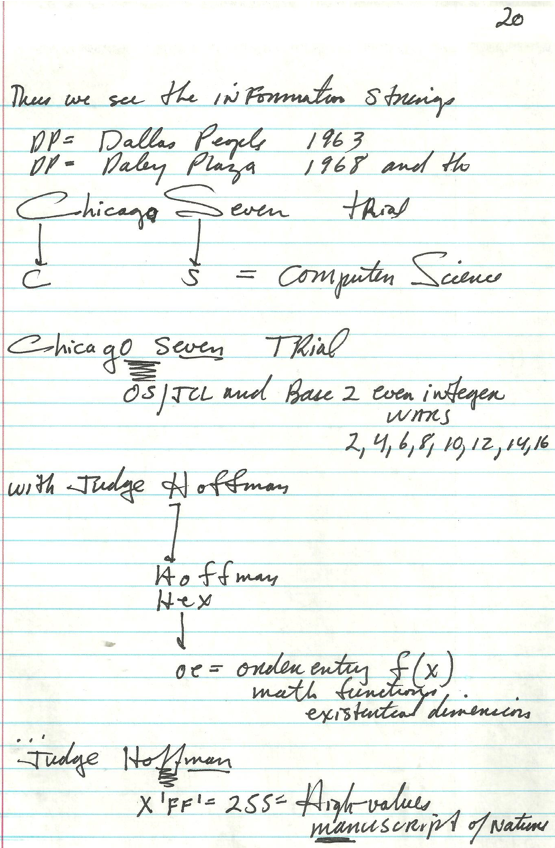 20
Thus we see the information strings
DP = Dallas People 1963
DP = Daley Plaza 1968 and the
Chicago Seven trial
C S = Computer Science
Chicago Seven TRial
OS/JCL and Base 2 even integer
WARS
2, 4, 6, 8, 10, 12, 14, 16
with Judge Hoffman
Hoffman
Hex
oe = order entry f(x)
math functions
existential dimensions
... Judge Hoffman
X'FF' = 255 = High-values
manuscript of Nature